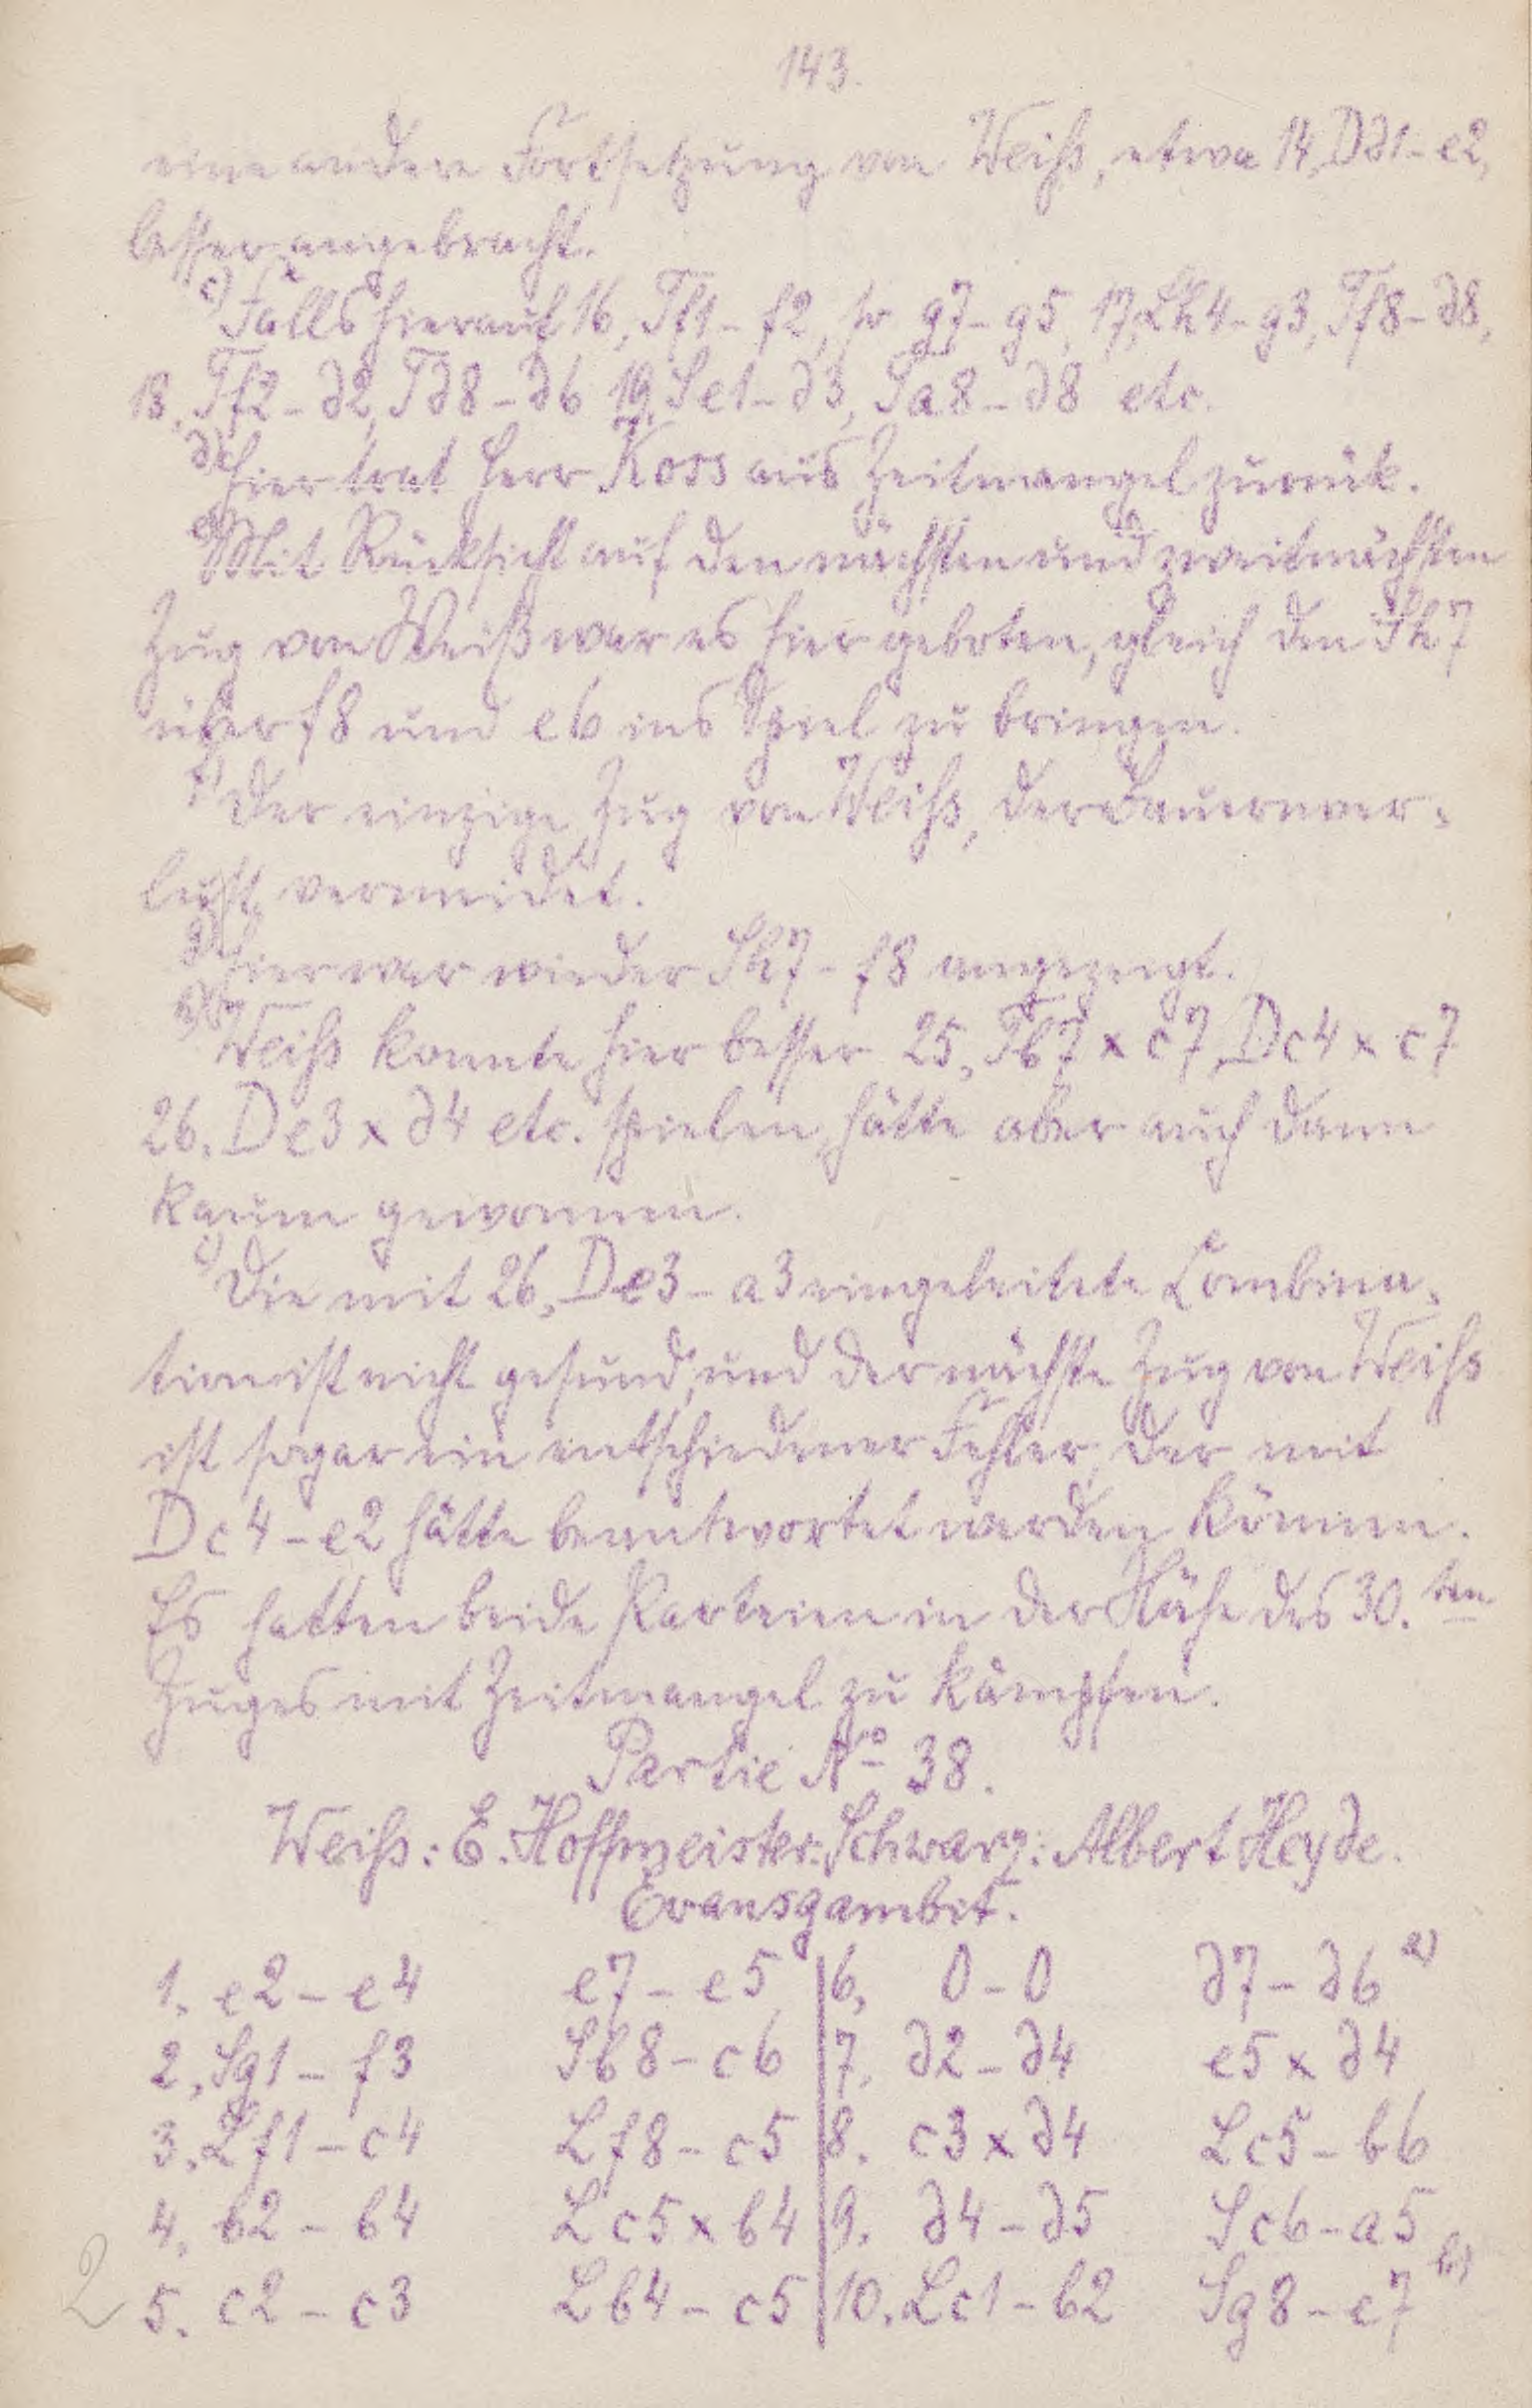 143.
eine andere Fortsetzung von Weiß, etwa 14, Dd1-e2,
besser angebracht.
c) Falls hierauf 16, Tf1-f2, so g7-g5, 17, Lh4-g3, Tf8-d8,
18, Tf2-d2, Td8-d6 19, Se1-d3, Ta8-d8 etc.
d) Hier trat Herr Koss aus Zeitmangel zurück.
e) Mit Rücksicht auf den nächsten und zweitnächsten
Zug von Weiß war es hier geboten, gleich den Sh7
über f8 und e6 ins Spiel zu bringen.
f) Der einzige Zug von Weiß, der Bauernver=
lust vermeidet.
g) Hier war wieder Sh7-f8 angezeigt.
h) Weiß konnte hier besser 25, Tb7 x c7, Dc4 x c7
26, De3 x d4 etc. spielen, hätte aber auch dann
kaum gewonnen.
i) Die mit 26, De3-a3 eingeleitete Combina=
tion ist nicht gesund, und der nächste Zug von Weiß
ist sogar ein entschiedener Fehler, der mit
Dc4-e2 hätte beantwortet werden können.
Es hatten beide Parteien in der Nähe des 30. ten
Zuges mit Zeitmangel zu kämpfen.
Partie No 38.
Weiß: E. Hoffmeister. Schwarz: Albert Heyde.
Evansgambit.
1. e2-e4 e7-e5 6, 0-0 d7-d6 a)
2, Sg1-f3 Sb8-c6 7, d2-d4 e5 x d4
3. Lf1-c4 Lf8-c5 8. c3 x d4 Lc5-b6
4, b2-b4 Lc5 x b4 9. d4-d5 Sc6-a5
5. c2-c3 Lb4-c5 10. Lc1-b2 Sg8-e7 b)
2